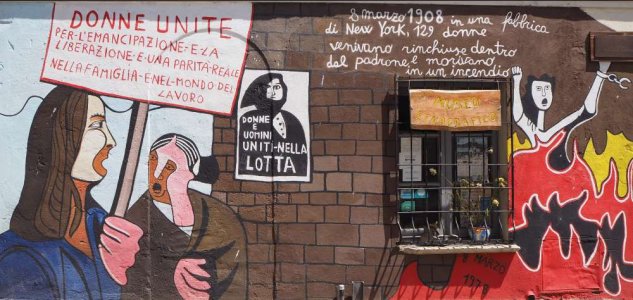 DONNE UNITE
PER·L'EMANCIPAZIONE·E·LA
LIBERAZIONE·E·UNA·PARITÀ·REALE
NELLA·FAMIGLIA·E·NEL·MONDO·DEL
LAVORO
DONNE
E
UOMINI
UNITI·NELLA
LOTTA
8 marzo 1908 in una fabbrica
di New York, 129 donne
venivano rinchiuse dentro
dal padrone e morivano
in un incendio
8 MARZO
1978